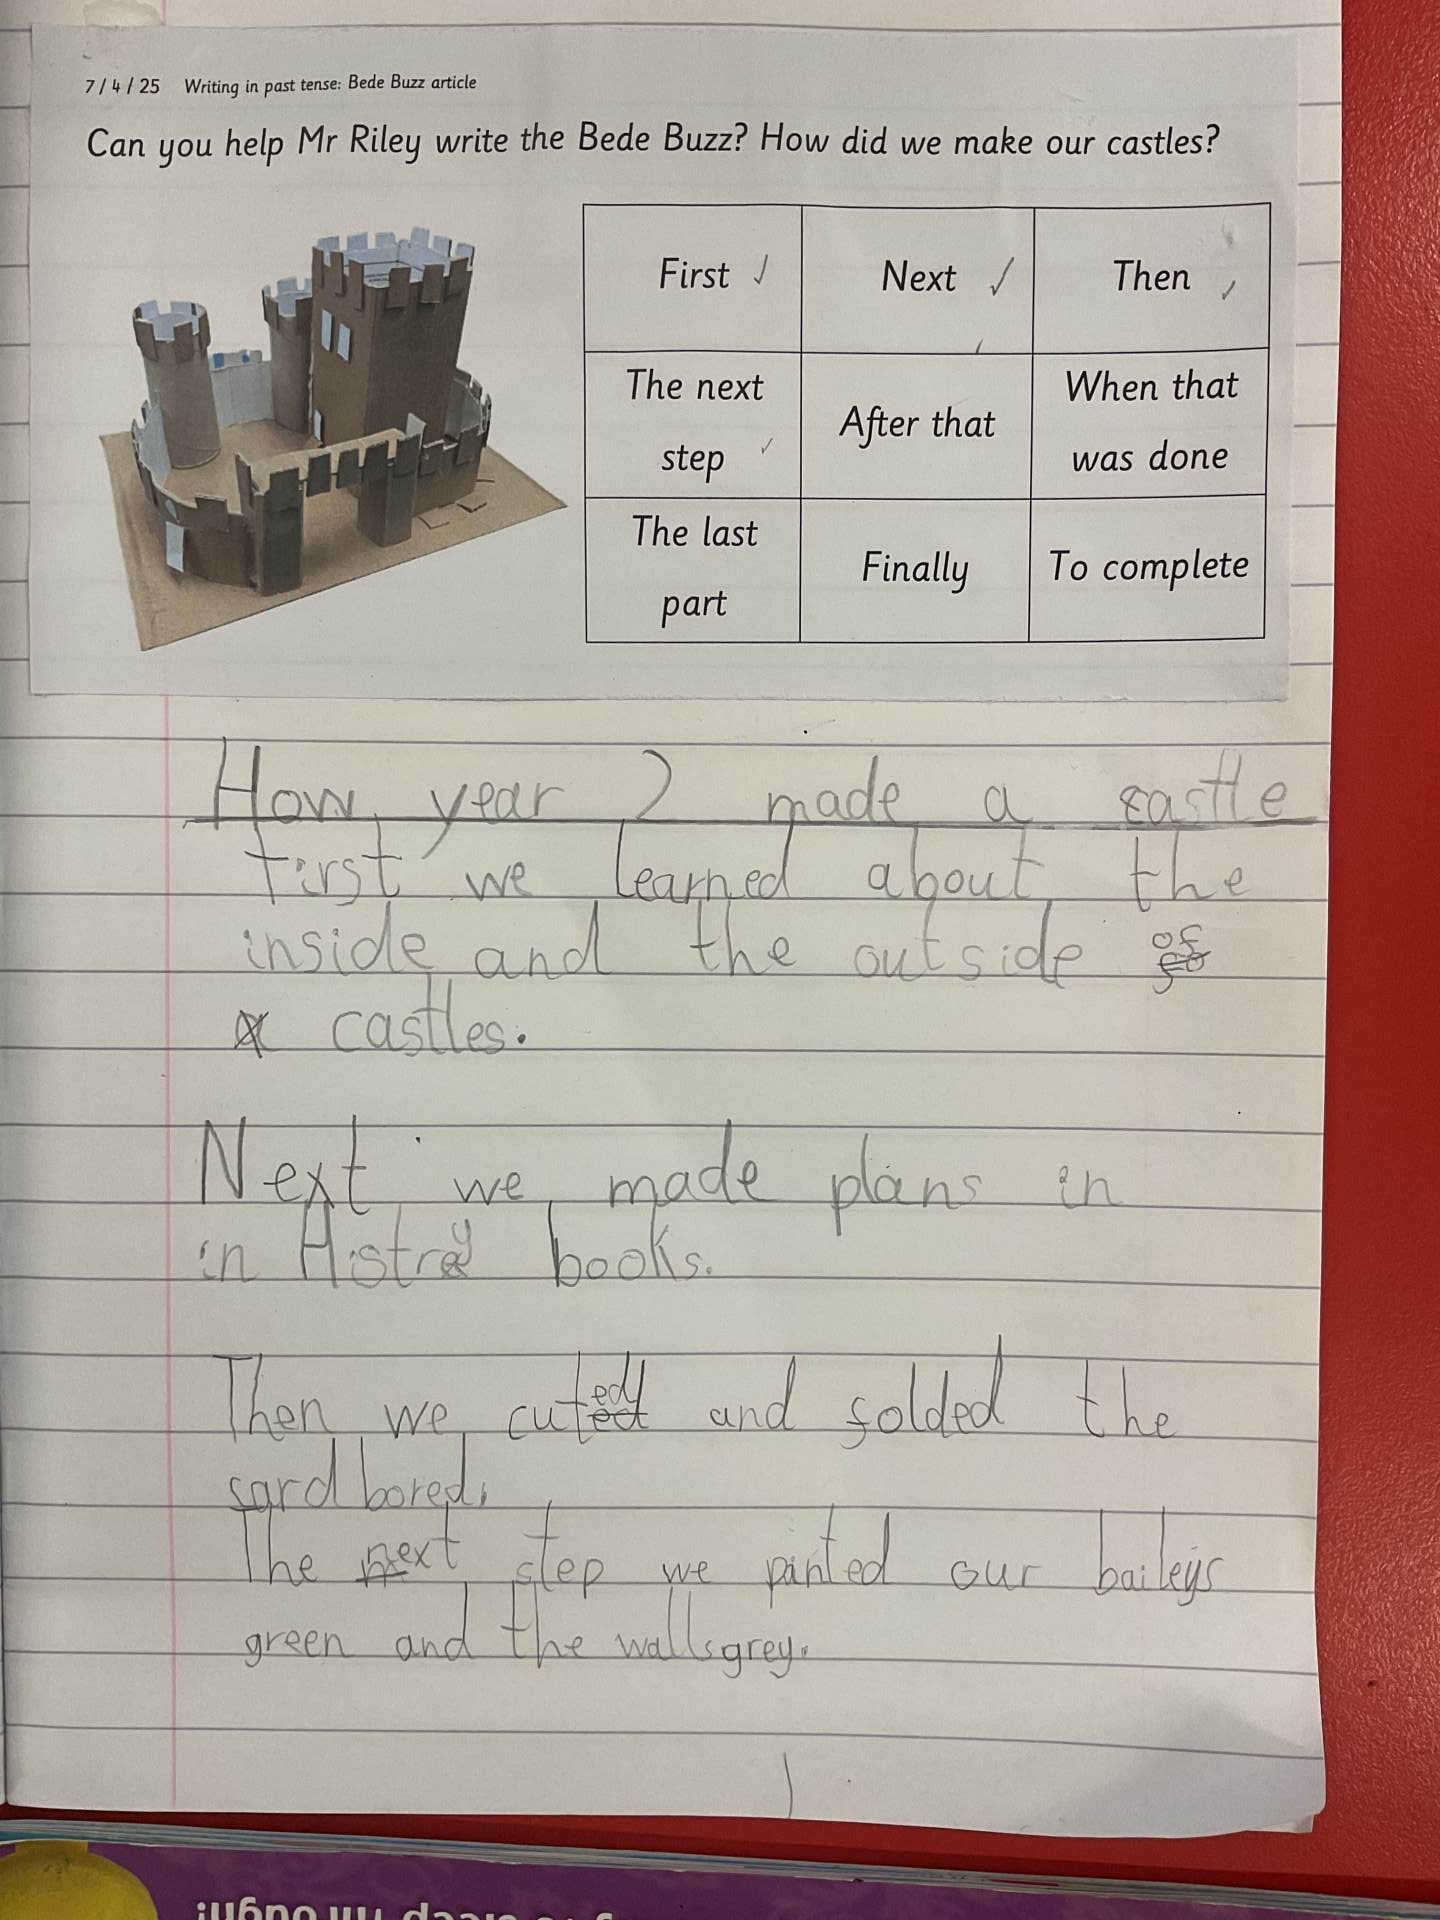 7 / 4 / 25 Writing in past tense: Bede Buzz article
Can you help Mr Riley write the Bede Buzz? How did we make our castles?
First ✓ Next ✓ Then ✓
The next step ✓ After that When that was done
The last part Finally To complete
How year 2 made a castle
first we learned about the
inside and the outside of
castles.
Next we made plans in
in Histrey books.
Then we cuted and folded the
cardbored.
The next step we pinted our baileys
green and the walls grey.